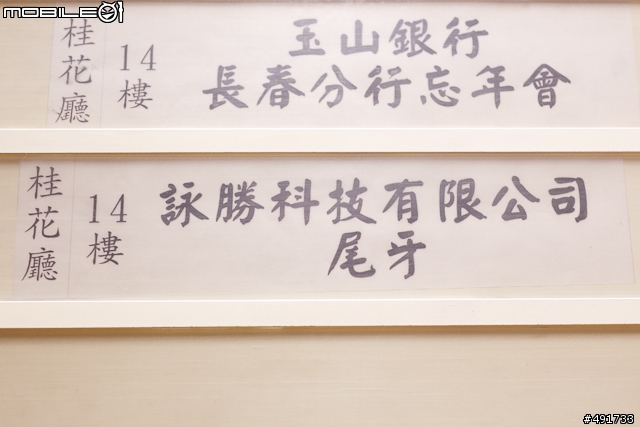 MOBILE01
桂花廳
14樓
玉山銀行
長春分行忘年會
桂花廳
14樓
詠勝科技有限公司
尾牙
#491733